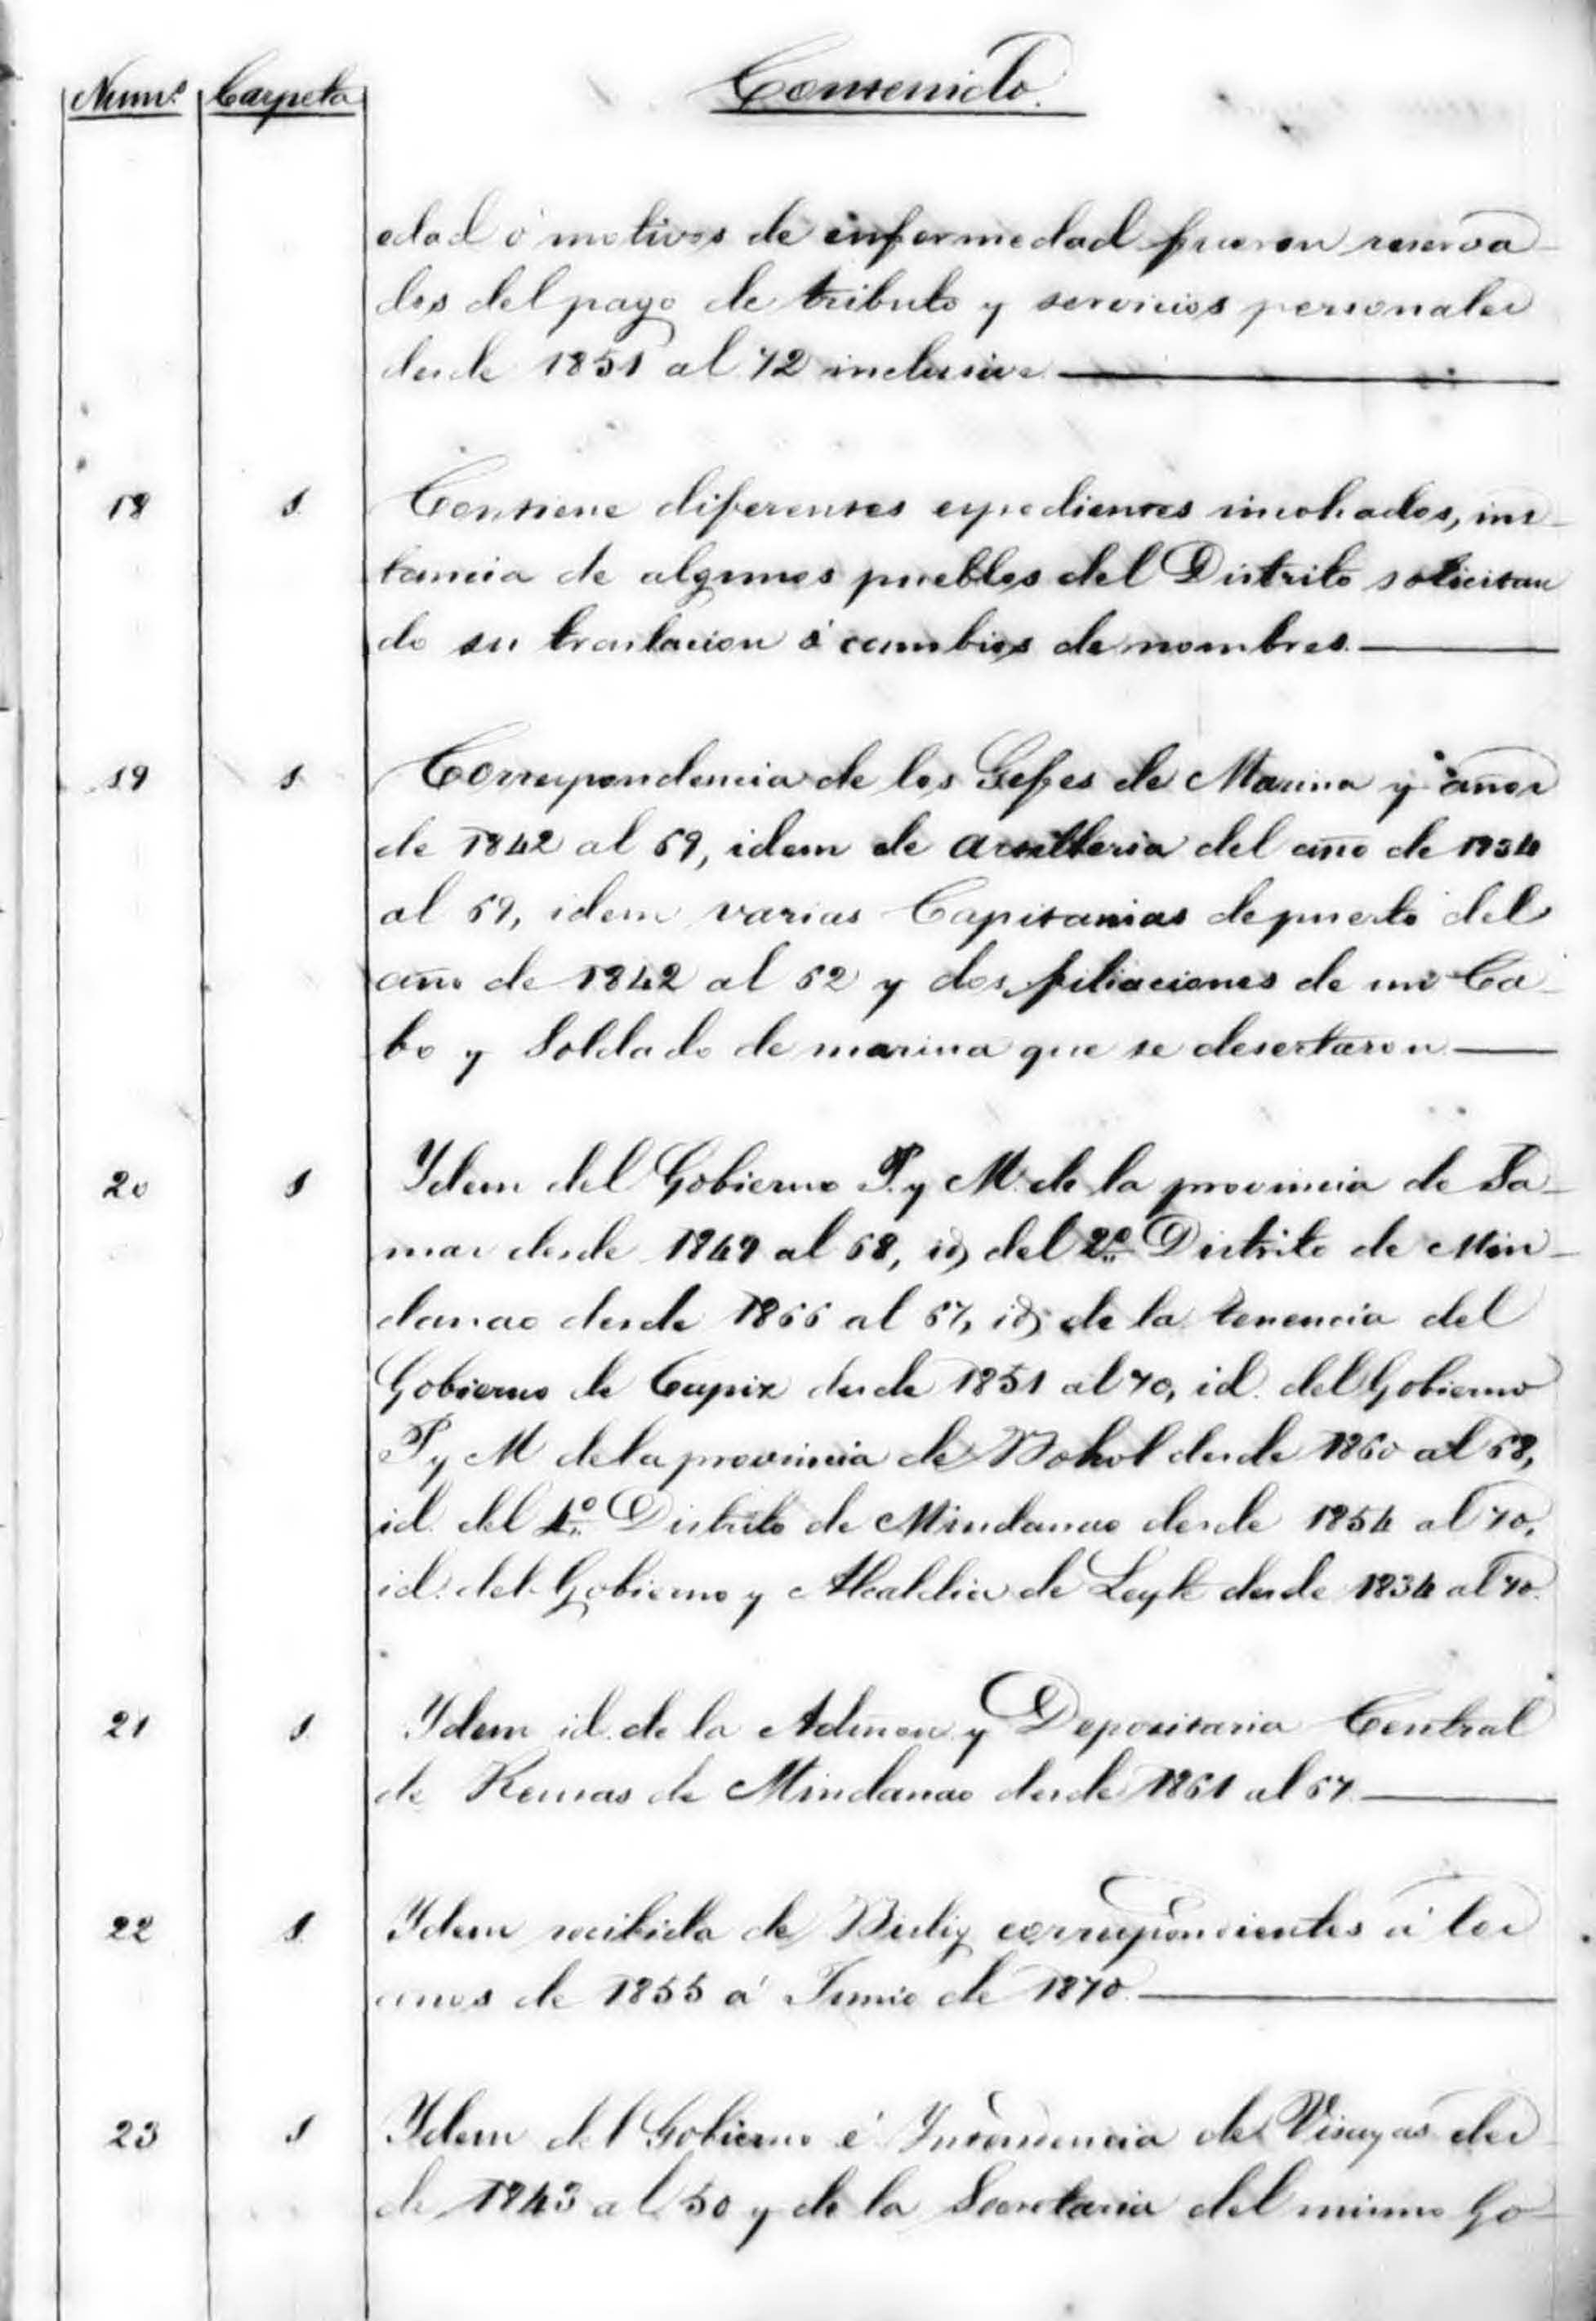 Num.s Carpeta Contenido.
edad ó motivos de enfermedad fueron reserva-
dos del pago de tributo y servicios personales
desde 1851 al 72 inclusive
18 1 Contiene diferentes espedientes incohados, ins-
tancia de algunos pueblos del Distrito solicitan
do su traslacion ó cambios de nombres.
19 1 Correspondencia de los Gefes de Marina y años
de 1842 al 69, idem de artilleria del año de 1834
al 69, idem varias Capitanias de puerto del
año de 1842 al 62 y dos filiaciones de un Ca-
bo y Soldado de marina que se desertaron
20 1 Ydem del Gobierno P. y M. de la provincia de Sa-
mar desde 1849 al 68, id del 2º Distrito de Min-
danao desde 1866 al 67, id de la tenencia del
Gobierno de Capiz desde 1851 al 70, id. del Gobierno
P y M de la provincia de Bohol desde 1860 al 68,
id. del 4º Distrito de Mindanao desde 1854 al 70,
id. del Gobierno y Alcaldia de Leyte desde 1834 al 70.
21 1 Ydem id. de la Admon y Depositaria Central
de Rentas de Mindanao desde 1861 al 67.
22 1 Ydem recibida de Bislig correspondientes á los
años de 1855 á Junio de 1870.
23 1 Ydem del Gobierno é Yntendencia de Visayas des
de 1843 al 50 y de la Secretaria del mismo Go-